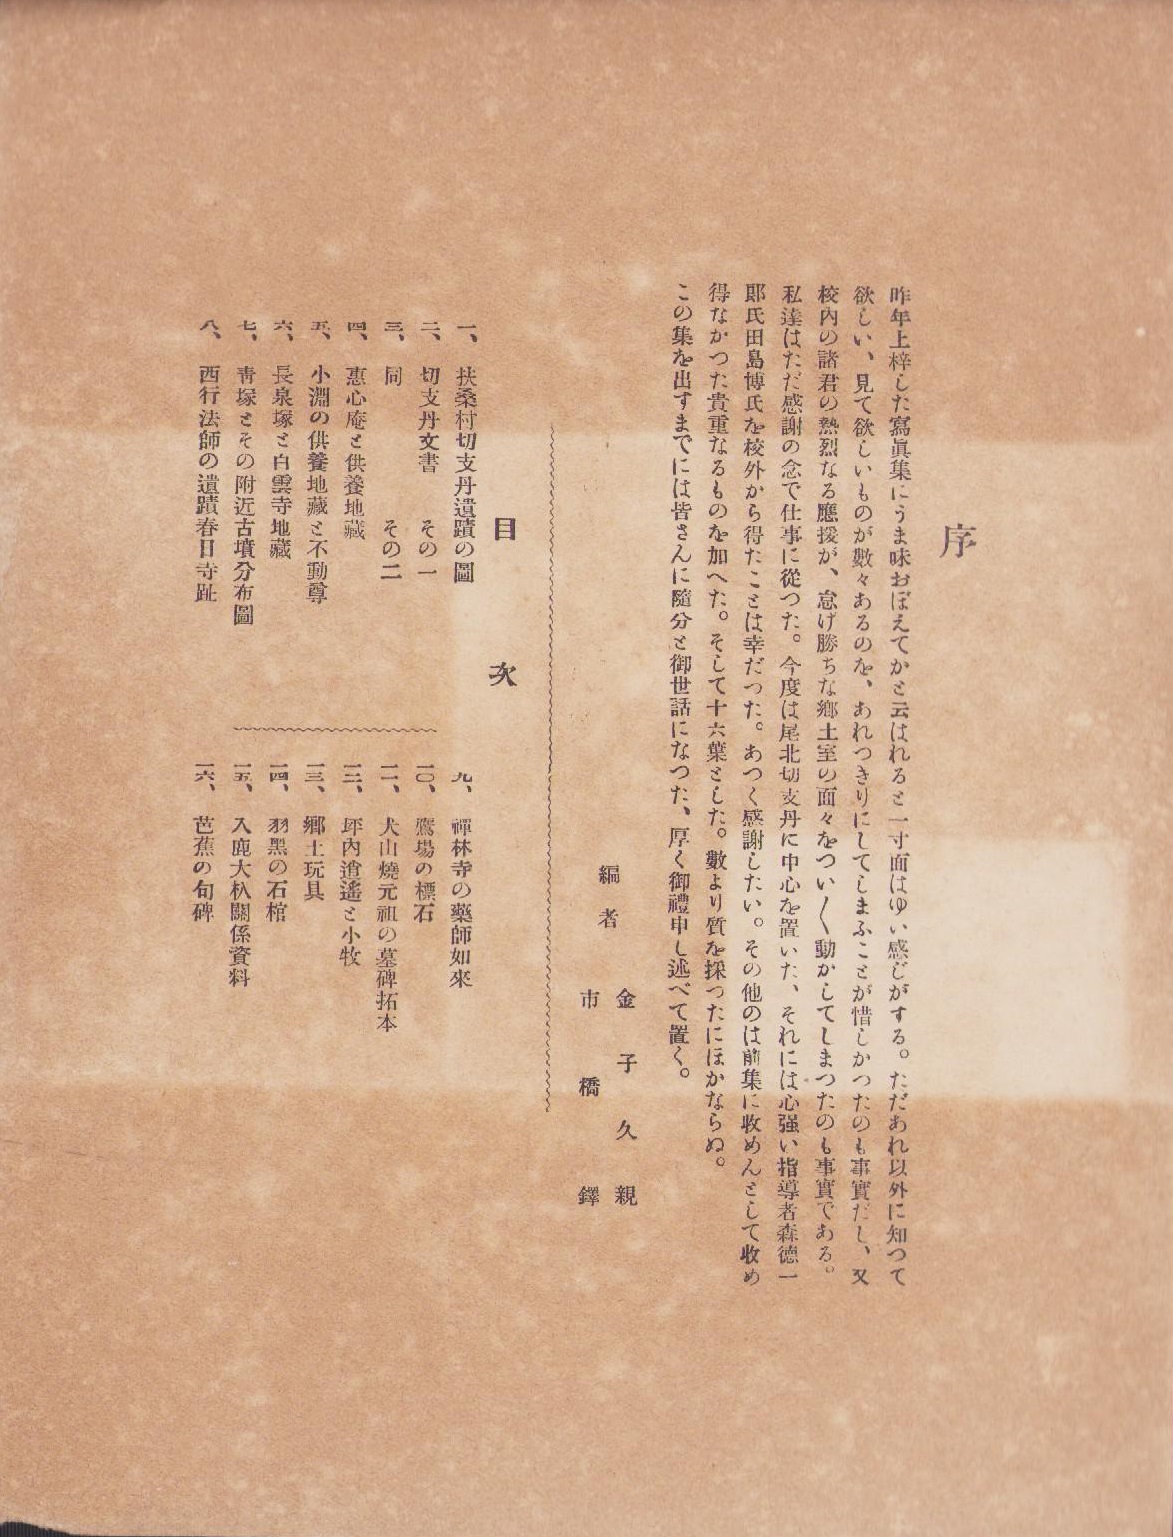 序
昨年上梓した寫眞集にうま味おぼえてかと云はれると一寸面はゆい感じがする。ただあれ以外に知つて
欲しい、見て欲しいものが數々あるのを、あれつきりにしてしまふことが惜しかつたのも事實だし、又
校内の諸君の熱烈なる應援が、怠げ勝ちな鄕土室の面々をつい〱動かしてしまつたのも事實である。
私達はただ感謝の念で仕事に從つた。今度は尾北切支丹に中心を置いた、それには心强い指導者森德一
郎氏田島博氏を校外から得たことは幸だつた。あつく感謝したい。その他のは前集に收めんとして收め
得なかつた貴重なるものを加へた。そして十六葉とした。數より質を採つたにほかならぬ。
この集を出すまでには皆さんに隨分と御世話になつた、厚く御禮申し述べて置く。
編者 金子久親
市橋鐸
目次
一、扶桑村切支丹遺蹟の圖
二、切支丹文書 その一
三、同 その二
四、惠心庵と供養地藏
五、小淵の供養地藏と不動尊
六、長泉塚と白雲寺地藏
七、靑塚とその附近古墳分布圖
八、西行法師の遺蹟春日寺趾
九、禪林寺の藥師如來
一〇、鷹場の標石
一一、犬山燒元祖の墓碑拓本
一二、坪内逍遙と小牧
一三、鄕土玩具
一四、羽黑の石棺
一五、入鹿大杁關係資料
一六、芭蕉の句碑